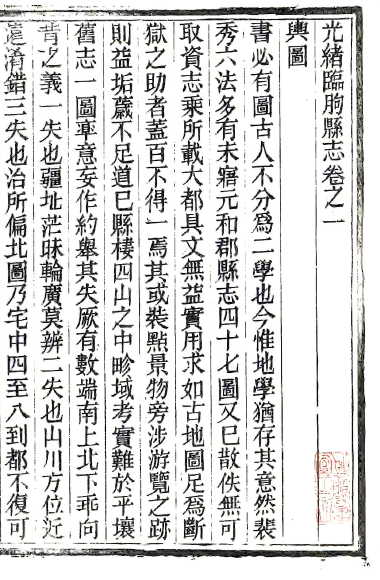 光緒臨朐縣志卷之一
輿圖
書必有圖古人不分爲二學也今惟地學猶存其意然裴
秀六法多有未寤元和郡縣志四十七圖又已散佚無可
取資志乘所載大都具文無益實用求如古地圖足爲斷
獄之助者葢百不得一焉其或裝點景物旁涉游覽之跡
則益垢蕆不足道已縣棲四山之中畛域考實難於平壤
舊志一圖率意妄作約舉其失厥有數端南上北下乖向
背之義一失也疆址茫昧輪廣莫辨二失也山川方位近
遠淆錯三失也治所偏北圖乃宅中四至八到都不復可